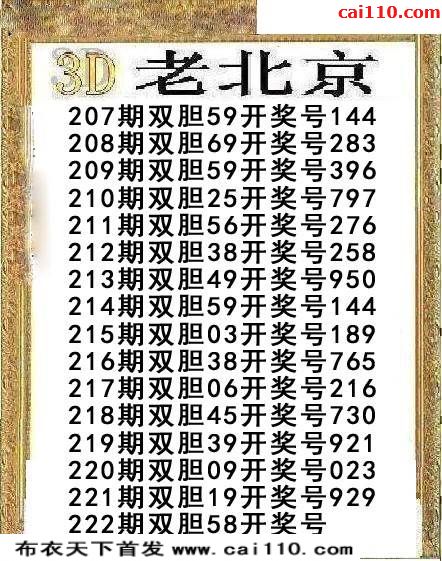 cai110.com
3D 老北京
207期双胆59开奖号144
208期双胆69开奖号283
209期双胆59开奖号396
210期双胆25开奖号797
211期双胆56开奖号276
212期双胆38开奖号258
213期双胆49开奖号950
214期双胆59开奖号144
215期双胆03开奖号189
216期双胆38开奖号765
217期双胆06开奖号216
218期双胆45开奖号730
219期双胆39开奖号921
220期双胆09开奖号023
221期双胆19开奖号929
222期双胆58开奖号
布衣天下首发 www.cai110.com